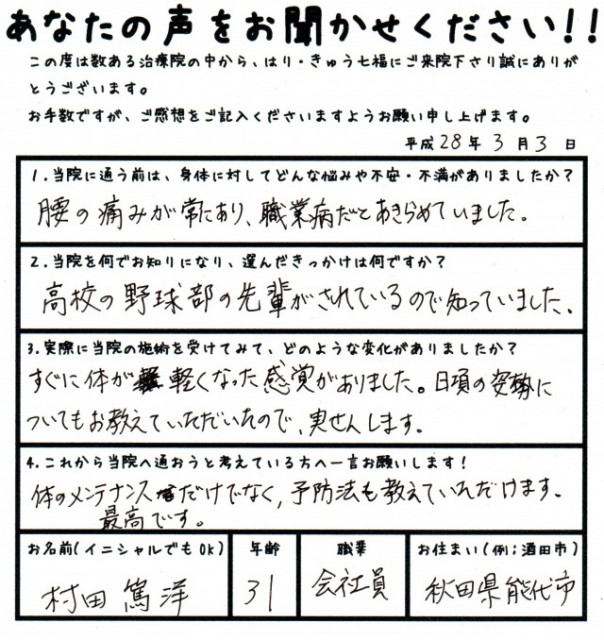 あなたの声をお聞かせください!!
この度は数ある治療院の中から、はり・きゅう七福にご来院下さり誠にありが
とうございます。
お手数ですが、ご感想をご記入くださいますようお願い申し上げます。
平成28年3月3日
1.当院に通う前は、身体に対してどんな悩みや不安・不満がありましたか?
腰の痛みが常にあり、職業病だとあきらめていました。
2.当院を何でお知りになり、選んだきっかけは何ですか?
高校の野球部の先輩がされているので知っていました。
3.実際に当院の施術を受けてみて、どのような変化がありましたか?
すぐに体が軽くなった感覚がありました。日頃の姿勢に
ついてもお教えていただいたので、実せんします。
4.これから当院へ通おうと考えている方へ一言お願いします!
体のメンテナンスだけでなく、予防法も教えていただけます。
最高です。
お名前(イニシャルでもOK) 年齢 職業 お住まい(例;酒田市)
村田 篤洋 31 会社員 秋田県能代市